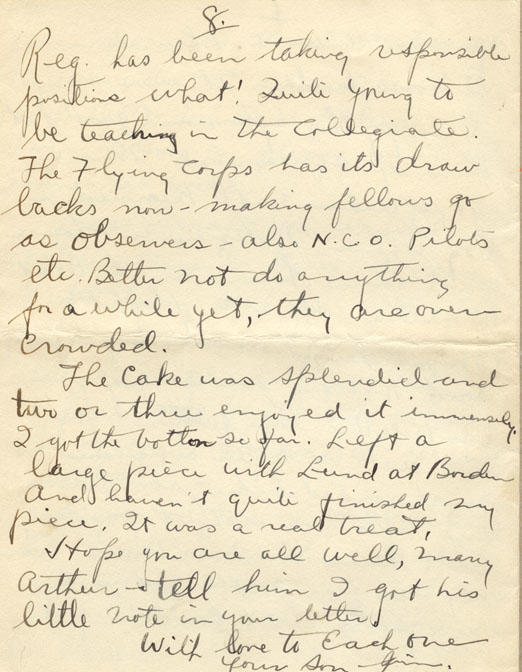 8.
Reg. has been taking responsible
positions what! Quite young to
be teaching in the Collegiate.
The Flying Corps has its draw
backs now - making fellows go
as Observers - also N.C.O. Pilots
etc. Better not do anything
for a while yet, they are over-
crowded.
The Cake was splendid and
two or three enjoyed it immensely.
I got the bottom so far. Left a
large piece with Lund at Borden
And haven't quite finished my
piece. It was a real treat,
Hope you are all well, many
Arthur - tell him I got his
little note in your letter.
With love to Each one
Your Son - Jim.